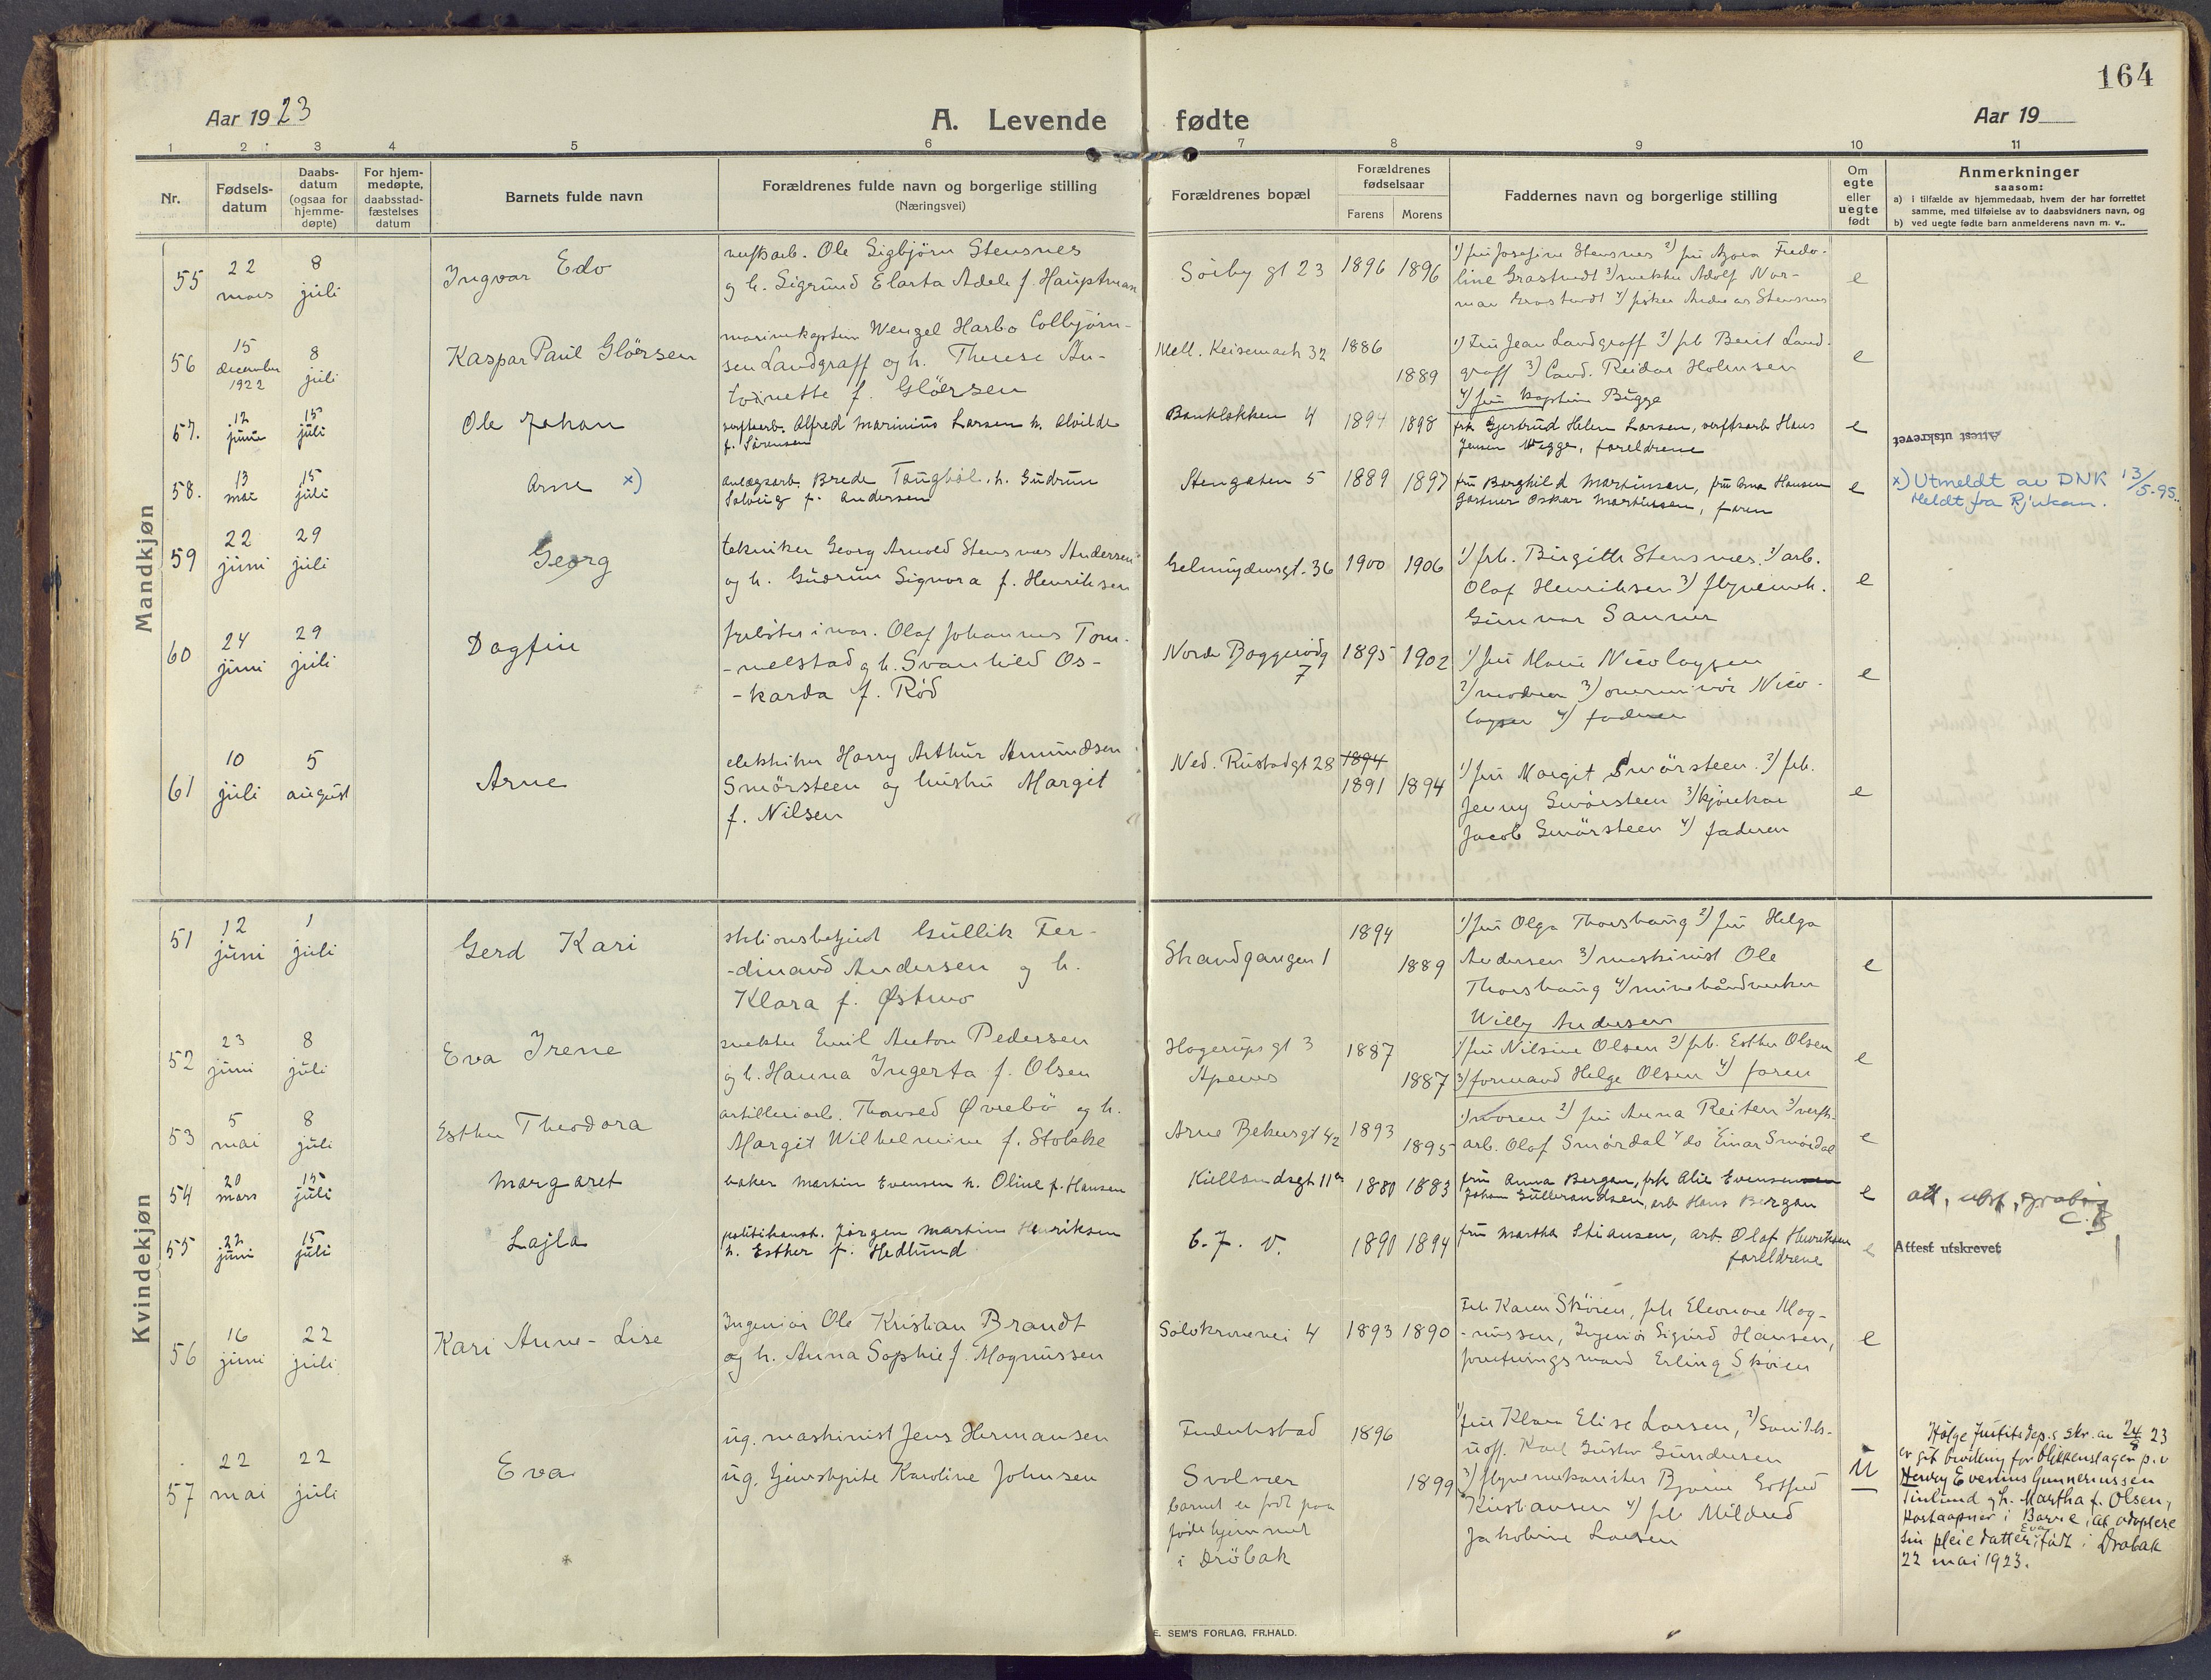 164
Aar 1923
A. Levende fødte
Aar 19
1 2 3 4 5 6 7 8 9 10 11
Nr.
Fødsels-
datum
Daabs-
datum
(ogsaa for
hjemme-
døpte)
For hjem-
medøpte,
daabsstad-
fæstelses
datum
Barnets fulde navn
Forældrenes fulde navn og borgerlige stilling
(Næringsvei)
Forældrenes bopæl
Forældrenes
fødselsaar
Farens Morens
Faddernes navn og borgerlige stilling
Om
egte
eller
uegte
født
Anmerkninger
saasom:
a) i tilfælde av hjemmedaab, hvem der har forrettet
samme, med tilføielse av to daabsvidners navn, og
b) ved uegte fødte barn anmelderens navn m. v..
Mandkjøn
55
22
mars
8
juli
Ingvar Edo
verftsarb. Ole Sigbjörn Stensnes
og h. Sigrund Elarta Adele f. Hauptman
Söiby gt 23
1896 1896
1) fru Josefine Stensnes 2) fru Agora Fredo-
line Grastvedt 3) snekker Adolf Nor-
man Grastvedt 4) fisker Andreas Stensnes
e
56
15
december
1922
8
juli
Kaspar Paul Glöersen
marinekaptein Wenzel Harbo Colbjörn-
sen Landgraff og h. Therese An-
toinette f. Glöersen
Mell. Keisemark 32
1886
1889
1) Fru Jean Landgraff 2) frk Berit Land-
graff 3) Cand. Reidar Holmsen
4) fru kaptein Bugge
e
57.
12
june
15
juli
Ole Johan
verftsarb. Alfred Marinius Larsen h. Alvilde
f. Sörensen
Bankløkken 4
1894 1898
frk Gjertrud Helene Larsen, verftsarb Hans
Jensen Wegge, foreldrene
e
Attest utskrevet
58.
13
mai
15
juli
Arne x)
anlægsarb. Brede Taugböl, h. Gudrun
Solveig f. Andersen
Stengaten 5
1889 1897
fru Borghild Martinsen, fru Erna Hansen
gartner Oskar Martinsen, faren
e
x) Utmeldt av DNK 13/5-95.
Meldt fra Rjukan.
59
22
juni
29
juli
Georg
tekniker Georg Arnold Stensnæs Andersen
og h. Gudrun Signora f. Henriksen
Gelmuydensgt. 36
1900 1906
1) frk. Birgith Stensnæs. 2) arb.
Olaf Henriksen 3) flyvemek.
Gunnar Sanner
e
60
24
juni
29
juli
Dagfin
fyrböter i mar. Olaf Johannes Tom-
-melstad og h. Svanhild Os-
-karda f. Röd
Nordre Baggerödg
7
1895 1902
1) fru Marie Nicolaysen
2) moderen 3) overminör Nico-
laysen 4) faderen
e
61
10
juli
5
august
Arne
elektriker Harry Arthur Amundsen
Smörsteen og hustru Margit
f. Nilsen
Ned. Rustadgt 28
1894
1891 1894
1) fru Margit Smörsteen. 2) frk.
Jenny Smörsteen 3) kjörekar
Jacob Smörsteen 4) faderen
e
Kvindekjøn
51
12
juni
1
juli
Gerd Kari
stationsbetjent Gullik Fer-
-dinand Andersen og h.
Klara f. Østmo
Strandgangen 1
1894
1889
1) fru Olga Thorshaug 2) fru Helga
Andersen 3) maskinist Ole
Thorshaug 4) minehåndverker
Willy Andersen
e
52
23
juni
8
juli
Eva Irene
snekker Emil Anton Pedersen
og h. Hanna Ingerta f. Olsen
Hagerups gt 3
Apenes
1887
1887
1) fru Nilsine Olsen 2) frk. Esther Olsen
3) formand Helge Olsen 4) faren
e
53
5
mai
8
juli
Esther Theodora
artilleriarb. Thorvald Øvrebö og h.
Margit Wilhelmine f. Stokke
Arne Bekersgt 42
1893
1895
1) moren 2) fru Anna Reiten 3) verfts-
arb. Olaf Smördal 4) do Einar Smördal
e
54
20
mars
15
juli
Margaret
baker Martin Evensen h. Oline f. Hansen
Kiellandsgt 11a
1880 1883
fru Anna Bergan, frk Alie Evensen
Johan Gulbrandsen, arb Hans Bergan
e
att. utst. gratis
C. B
55
22
juni
15
juli
Lajla
politikonst. Jörgen Martin Henriksen
h. Esther f. Hedlund
6. 7. V.
1890 1894
fru Martha Stiansen, arb. Olaf Henriksen
foreldrene
e
Attest utskrevet
56
16
juni
22
juli
Kari Anne-Lise
Ingeniör Ole Kristian Brandt
og h. Anna Sophie f. Magnussen
Solokroneivei 4
1893 1890
Frk Karen Sköien, frk Eleonore Mag-
-nussen, Ingeniör Sigurd Hansen,
forretningsmand Erling Sköien
e
57
22
mai
22
juli
Eva
ug. maskinist Jens Hermansen
ug. tjenestepike Karoline Johnsen
Fredrikstad
Svolvær
barnet er född paa
födehjemmet
i Dröbak
1896
1899
1) fru Klara Elise Larsen, 2) Sanitets-
uoff. Karl Gustav Gundersen
3) flyvemekaniker Bjarne Gotfred
Kristiansen 4) frk Mildred
Jakobine Larsen
u
Ifölge Justitsdep.s skr. av 24/8 23
er git bevilling for blikkenslager p.v
Henry Evenius Gunneriussen
Tinlund og h. Martha f. Olsen,
Postaapner i Borre, at adoptere
sin pleiedatter Eva, född i Drøbak
22 mai 1923.
E. SEM'S FORLAG, FR.HALD.